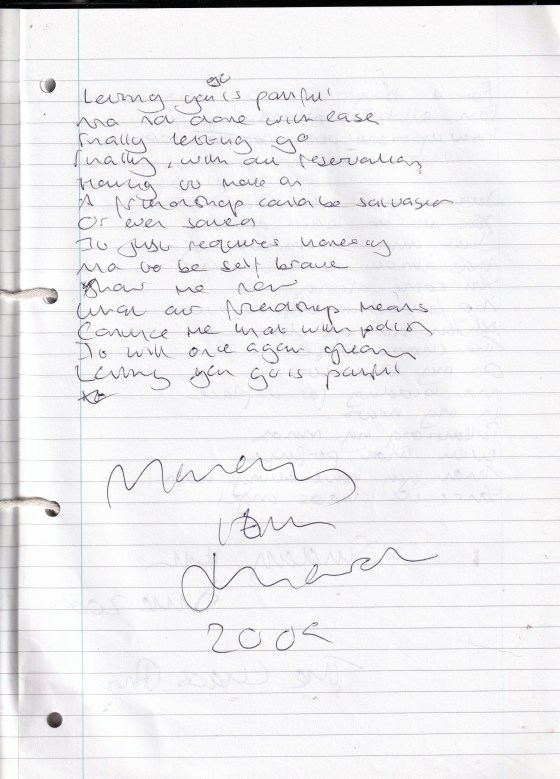 Letting you go is painful
And not done with ease
Finally letting go
Finally, with out reservation
Having to move on
A friendship could be salvaged
Or even saved
It just requires honesty
And to be self brave
Show me now
What our friendship means
Convince me that with
It will once again gleam
Letting you go is painful
Monday
2005